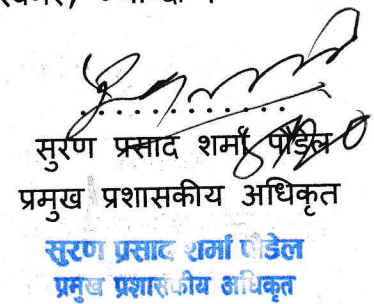 ............
सुरण प्रसाद शर्मा पौडेल
प्रमुख प्रशासकीय अधिकृत
सुरण प्रसाद शर्मा पौडेल
प्रमुख प्रशासकीय अधिकृत